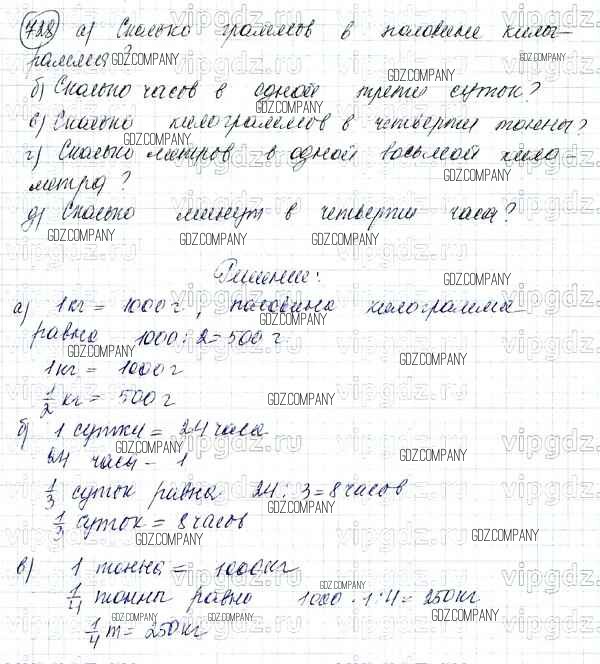 728 а) Сколько граммов в половине кило-
грамма?
б) Сколько часов в одной трети суток?
в) Сколько килограммов в четверти тонны?
г) Сколько метров в одной восьмой кило-
метра?
д) Сколько минут в четверти часа?
Решение:
а) 1кг = 1000г, половина килограмма
равна 1000 : 2 = 500 г.
1кг = 1000г
1/2 кг = 500г
б) 1 сутки = 24 часа
24 часа – 1
1/3 суток равна 24 : 3 = 8 часов
1/3 суток = 8 часов
в) 1 тонна = 1000кг
1/4 тонны равна 1000 · 1 : 4 = 250кг
1/4 т = 250кг